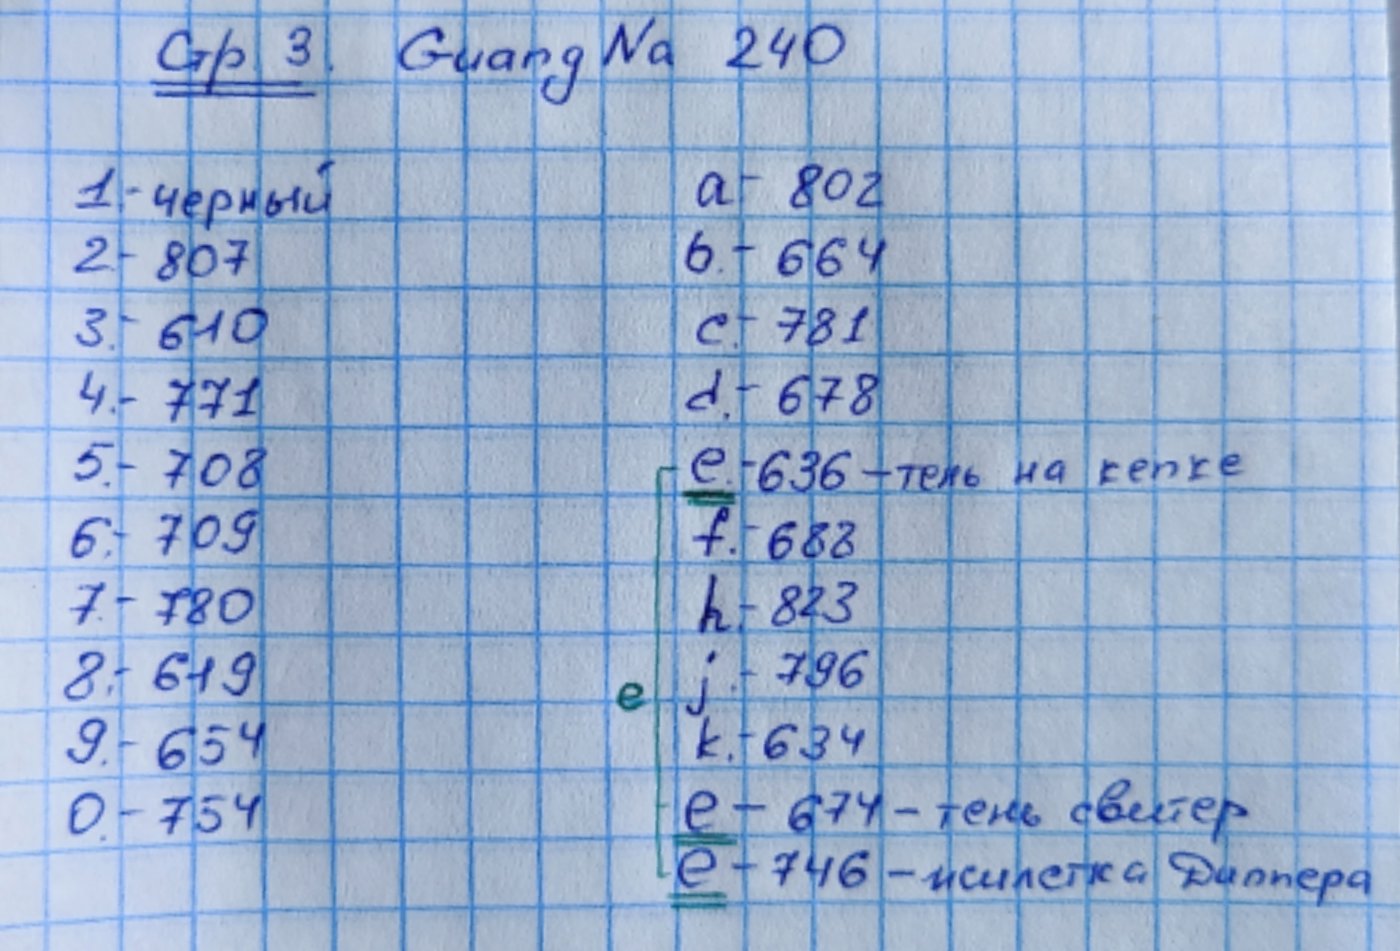 Стр 3. GuangNa 240
1 - черный
2. - 807
3. - 610
4. - 771
5. - 708
6. - 709
7. - 780
8. - 619
9. - 654
0. - 754
a - 802
b. - 664
c. - 781
d. - 678
e. - 636 - тень на кепке
f. - 683
h. - 823
j. - 796
k. - 634
e
e - 674 - тень свитер
e - 746 - жилетка Диппера